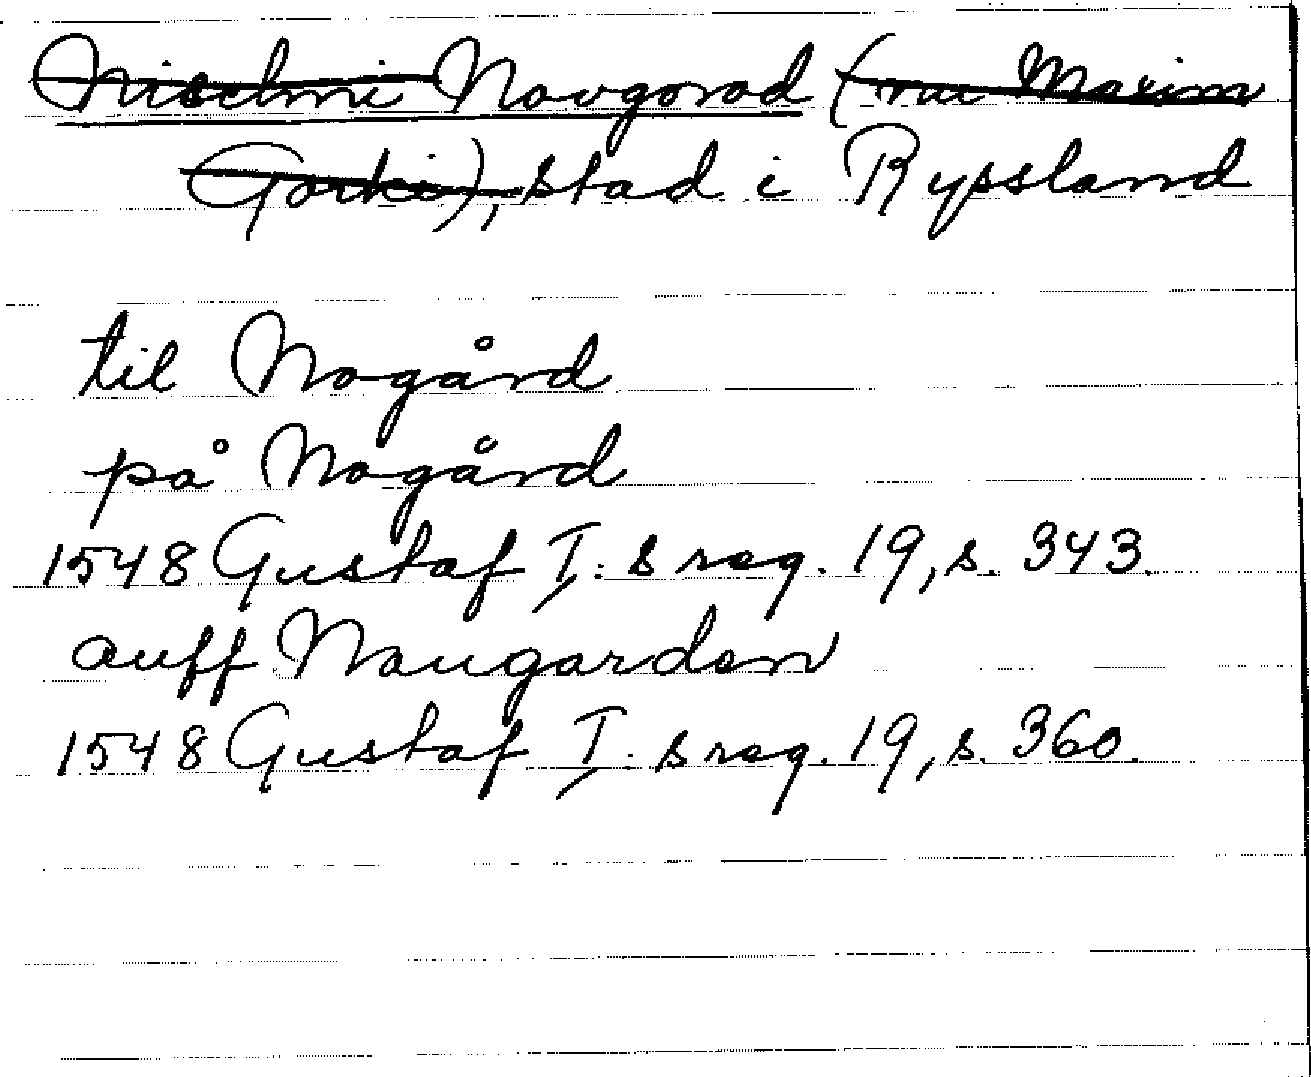 Nischni Novgorod (nu Maxim
Gorki), stad i Ryssland
til Nogård
på Nogård
1548 Gustaf I:s reg. 19, s. 343.
auff Naugarden
1548 Gustaf I:s reg. 19, s. 360.